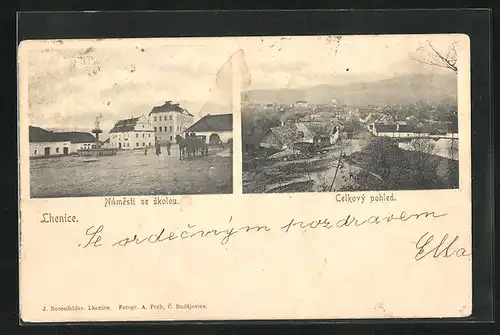 Náměstí se školou.
Celkový pohled.
Lhenice.
Se srdečným pozdravem
Ella
J. Rosenfelder, Lhenice. Fotogr. A. Prok, Č. Budějovice.